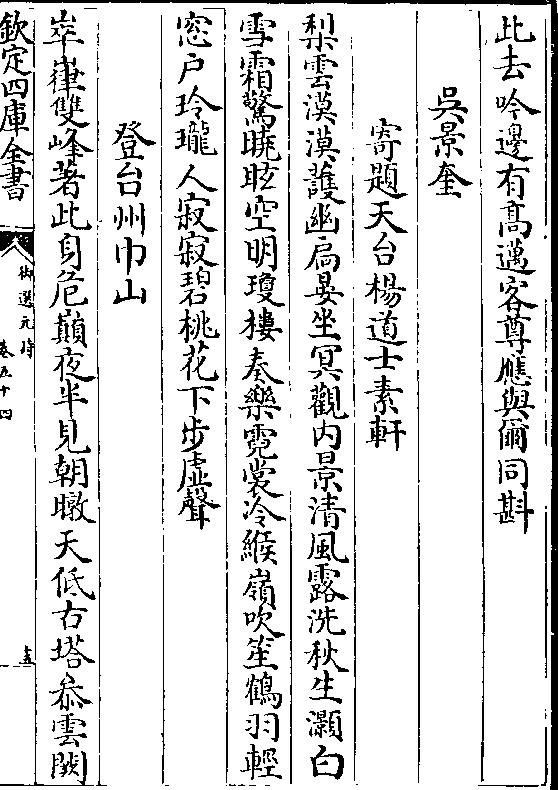 此去吟邊有髙邁客尊應與爾同斟
吳景奎
寄題天台楊道士素軒
梨雲漠漠護幽扃晏坐冥觀内景清風露洗秋生灝白
雪霜驚曉眩空明瓊樓奏樂霓裳冷緱嶺吹笙鶴羽輕
窓户玲瓏人寂寂碧桃花下步虛聲
登台州巾山
崒嵂雙峰著此身危巔夜半見朝暾天低古塔叅雲闕
欽定四庫全書
御選元詩
卷五十四
十五